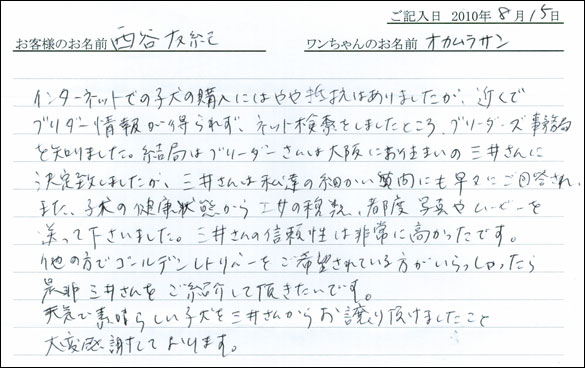 ご記入日 2010年 8月 15日
お客様のお名前 西谷友紀 ワンちゃんのお名前 オカムラサン
インターネットでの子犬の購入にはやや抵抗はありましたが、近くで
ブリダー情報が得られず、ネット検索をしましたところ、ブリーダーズ事務局
を知りました。結局はブリーダーさんは大阪にお住まいの三井さんに
決定致しましたが、三井さんは私達の細かい質問にも早々にご回答され、
また、子犬の健康状態からエサの種類、都度写真やムービーを
送って下さいました。三井さんの信頼性は非常に高かったです。
他の方でゴールデンレトリバーをご希望されている方がいらっしゃったら
是非三井さんをご紹介して頂きたいです。
元気で素晴らしい子犬を三井さんからお譲り頂けましたこと
大変感謝しております。